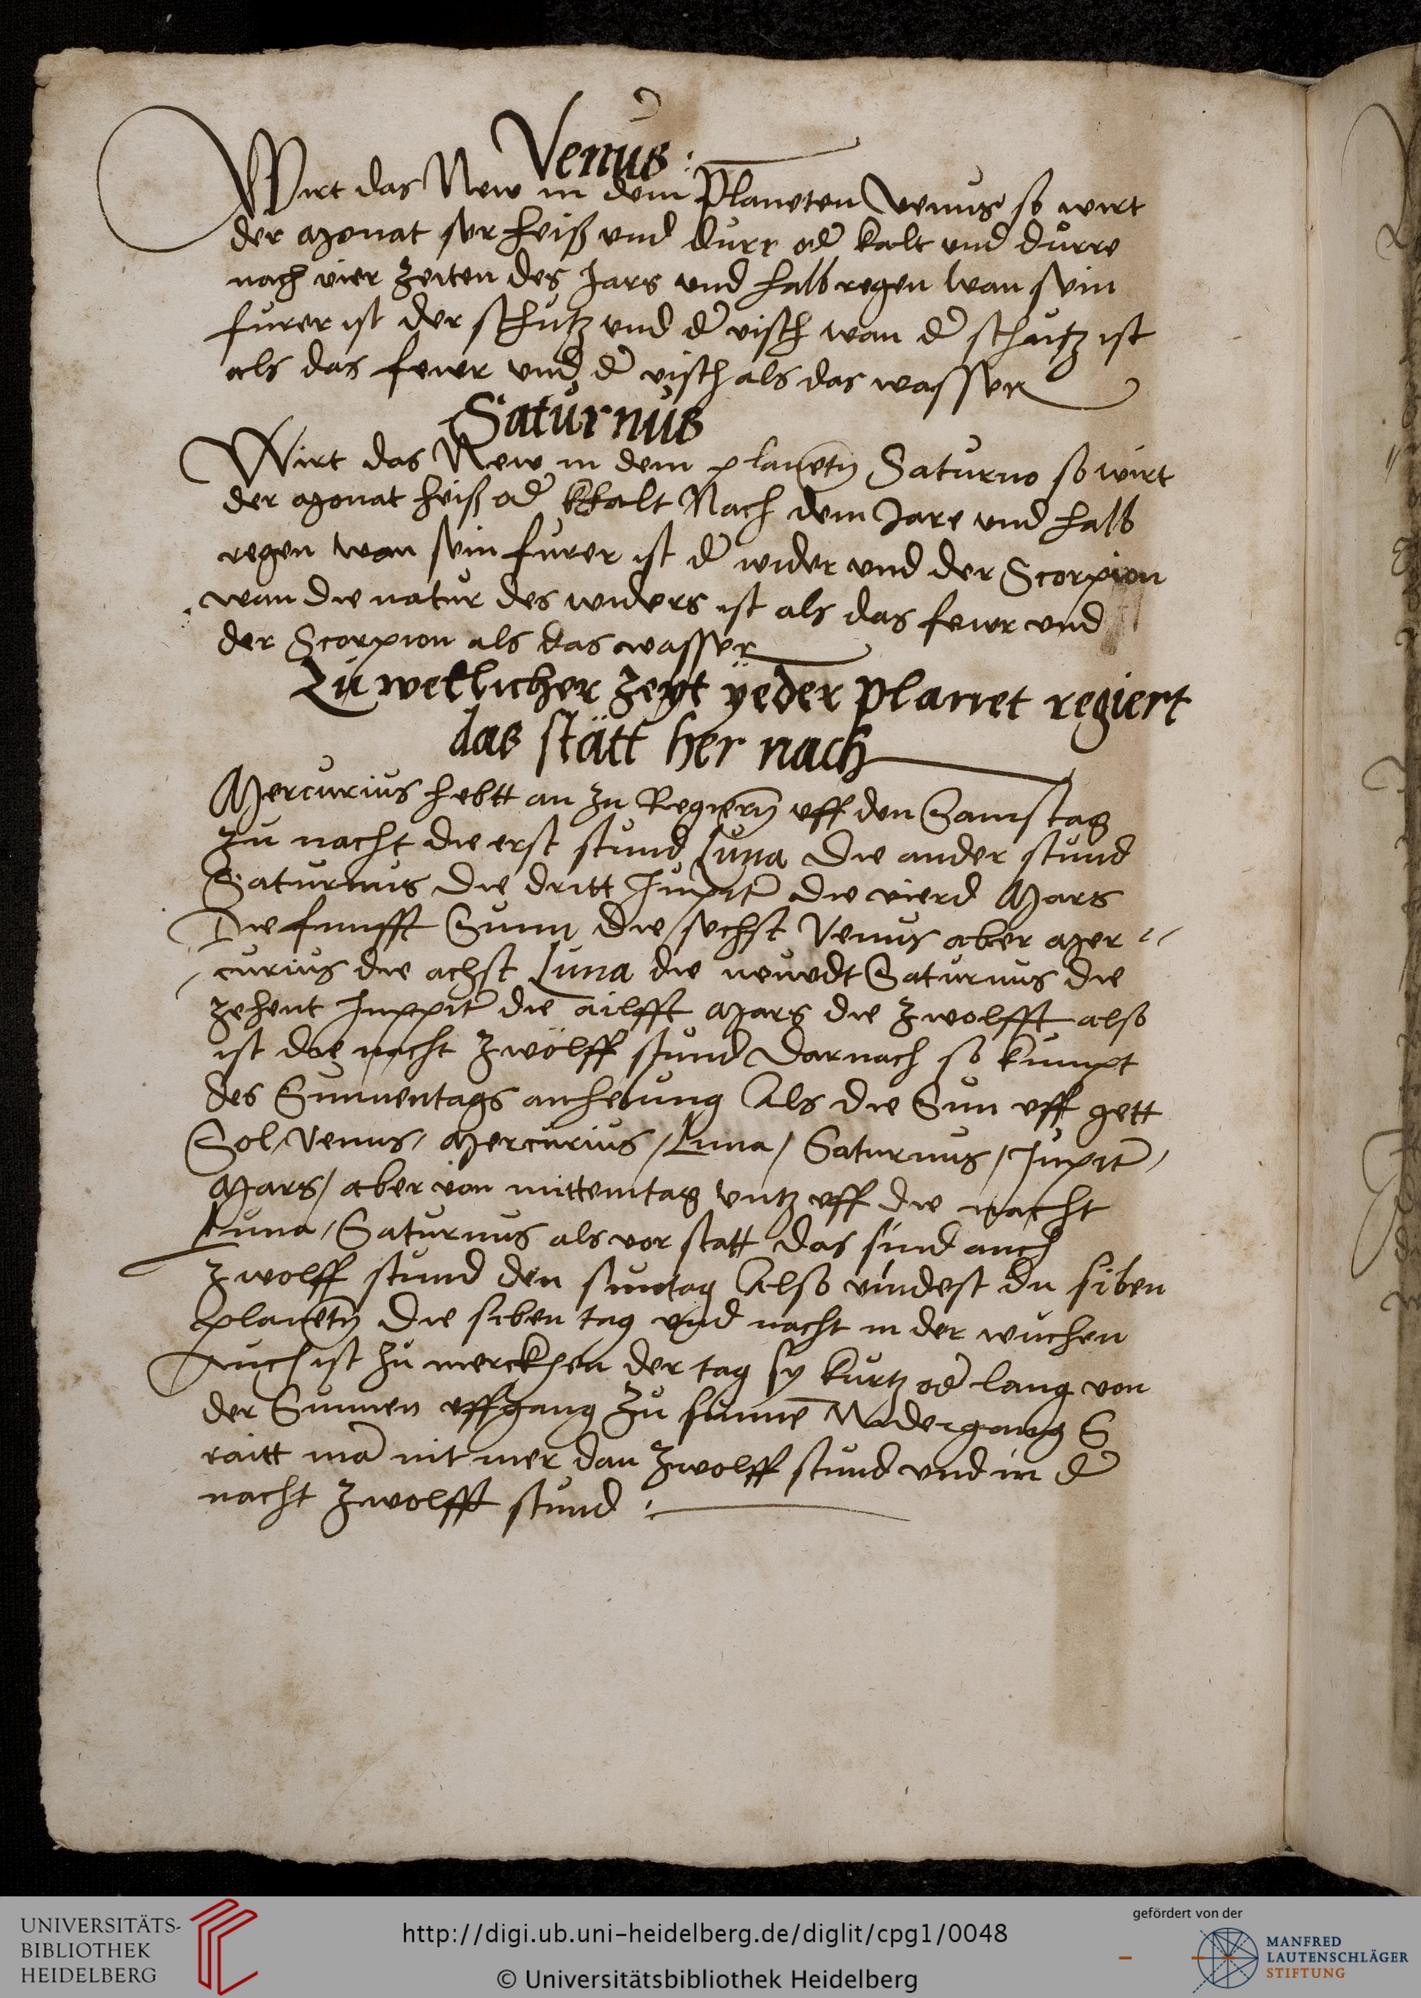 Venus :
Wirt das New in dem Planeten venus so wirt
der monat ser heiß und durr oder kalt und dürre
nach vier zeiten des Jars und halb regen wan sein
furer ist der schutz und der visch wan der schutz ist
als das fewr und der visch als das wasser
Saturnus
Wirt das New in dem planeten Saturno so wirt
der monat heiß oder kkalt Nach dem Jare und halb
regen wan sein furer ist der wider und der Scorpion
wan die natur des widers ist als das fewr und
der Scorpion als das wasser
Zu wellicher zeyt yeder planet regiert
das stätt her nach
Mercurius hebtt an zu Regiern uff den Samstag
zu nacht die erst stund Luna die ander stund
Saturnus die dritt Jupiter die vierd Mars
Die funfft Sunn die sechst Venus aber mer
curius die achst Luna die neundt Saturnus die
zehent Juppiter die ailfft Mars die zwolfft also
ist die nacht zwölff stund Darnach so kumpt
des Sunnentags anhebung Als die Sun uff gett
Sol / Venus / Mercurius / Luna / Saturnus / Jupiter /
Mars / aber von mittemtag untz uff die nacht
Luna / Saturnus als vor statt das sind auch
zwolff stund den suntag Also vindest du siben
planeten die siben tag und nacht in der wuchen
Auch ist zu merckhen der tag sy kurtz oder lang von
der Sunnen uffgang zu sunnen Nidergang S
raitt man nit mer dan zwolff stund und in der
nacht zwolfft stund :
UNIVERSITÄTS-
BIBLIOTHEK
HEIDELBERG
http://digi.ub.uni-heidelberg.de/diglit/cpg1/0048
© Universitätsbibliothek Heidelberg
gefördert von der
MANFRED
LAUTENSCHLÄGER
STIFTUNG